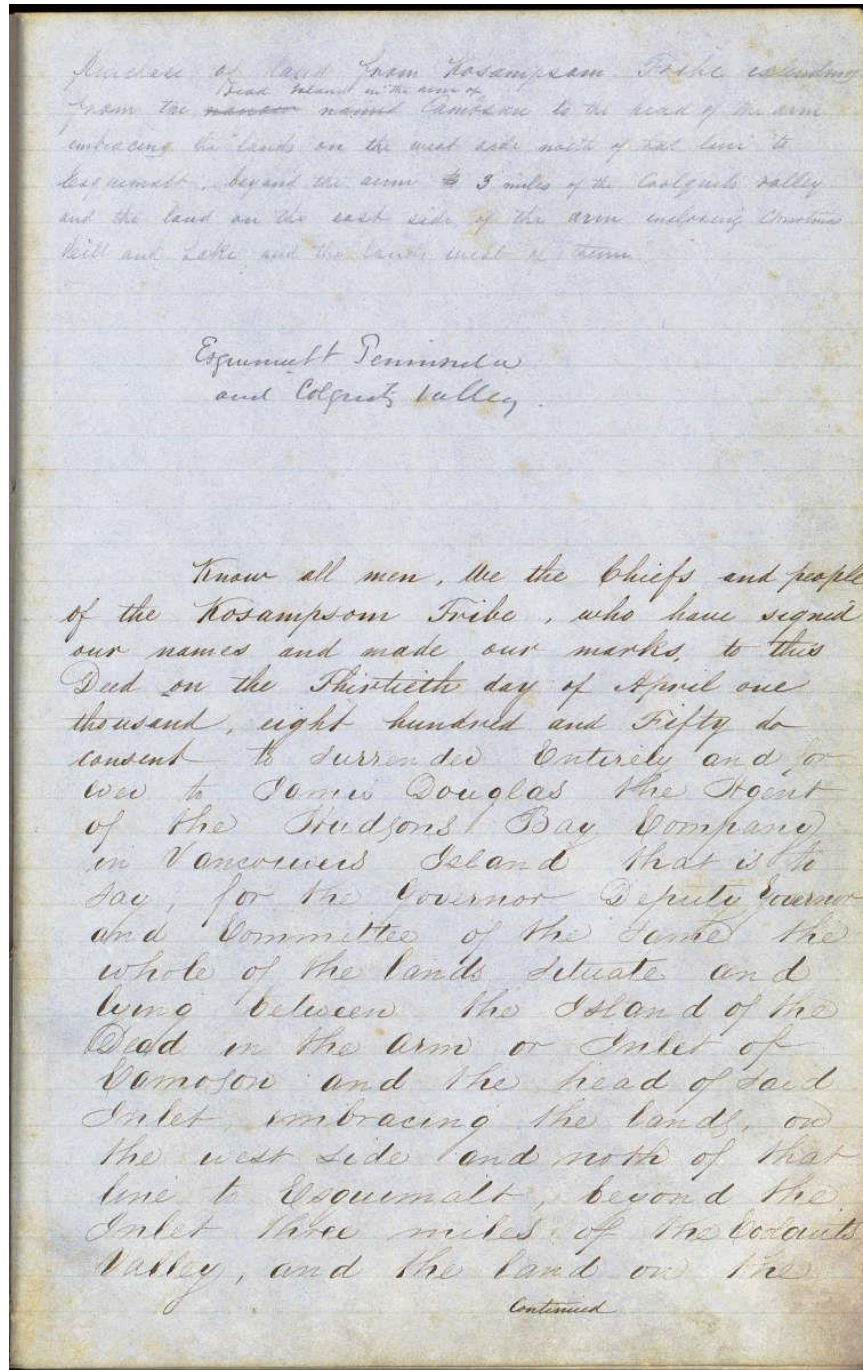 Purchase of land from Kosampsom Tribe extending
Dead Island in the arm of
from the narrow named Cambsau to the head of the arm
embracing the lands on the west side north of that line to
Esquimalt, beyond the arm 3 miles of the Coolquits valley
and the land on the east side of the arm inclosing Christmas
Hill and Lake and the lands west of them
Esquimalt Peninsula
and Colquitz Valley.
Know all men, We the Chiefs and people
of the Kosampsom Tribe, who have signed
our names and made our marks, to this
Deed on the Thirtieth day of April one
thousand, eight hundred and Fifty do
consent to surrender Entirely and for
ever to James Douglas the Agent
of the Hudsons Bay Company
in Vancouvers Island that is to
say, for the Governor Deputy Governor
and Committee of the same the
whole of the lands situate and
lying between the Island of the
Dead in the arm or Inlet of
Camoson and the head of said
Inlet, embracing the lands, on
the west side and noth of that
line to Esquimalt, beyond the
Inlet three miles of the Colquits
Valley, and the land on the
Continued